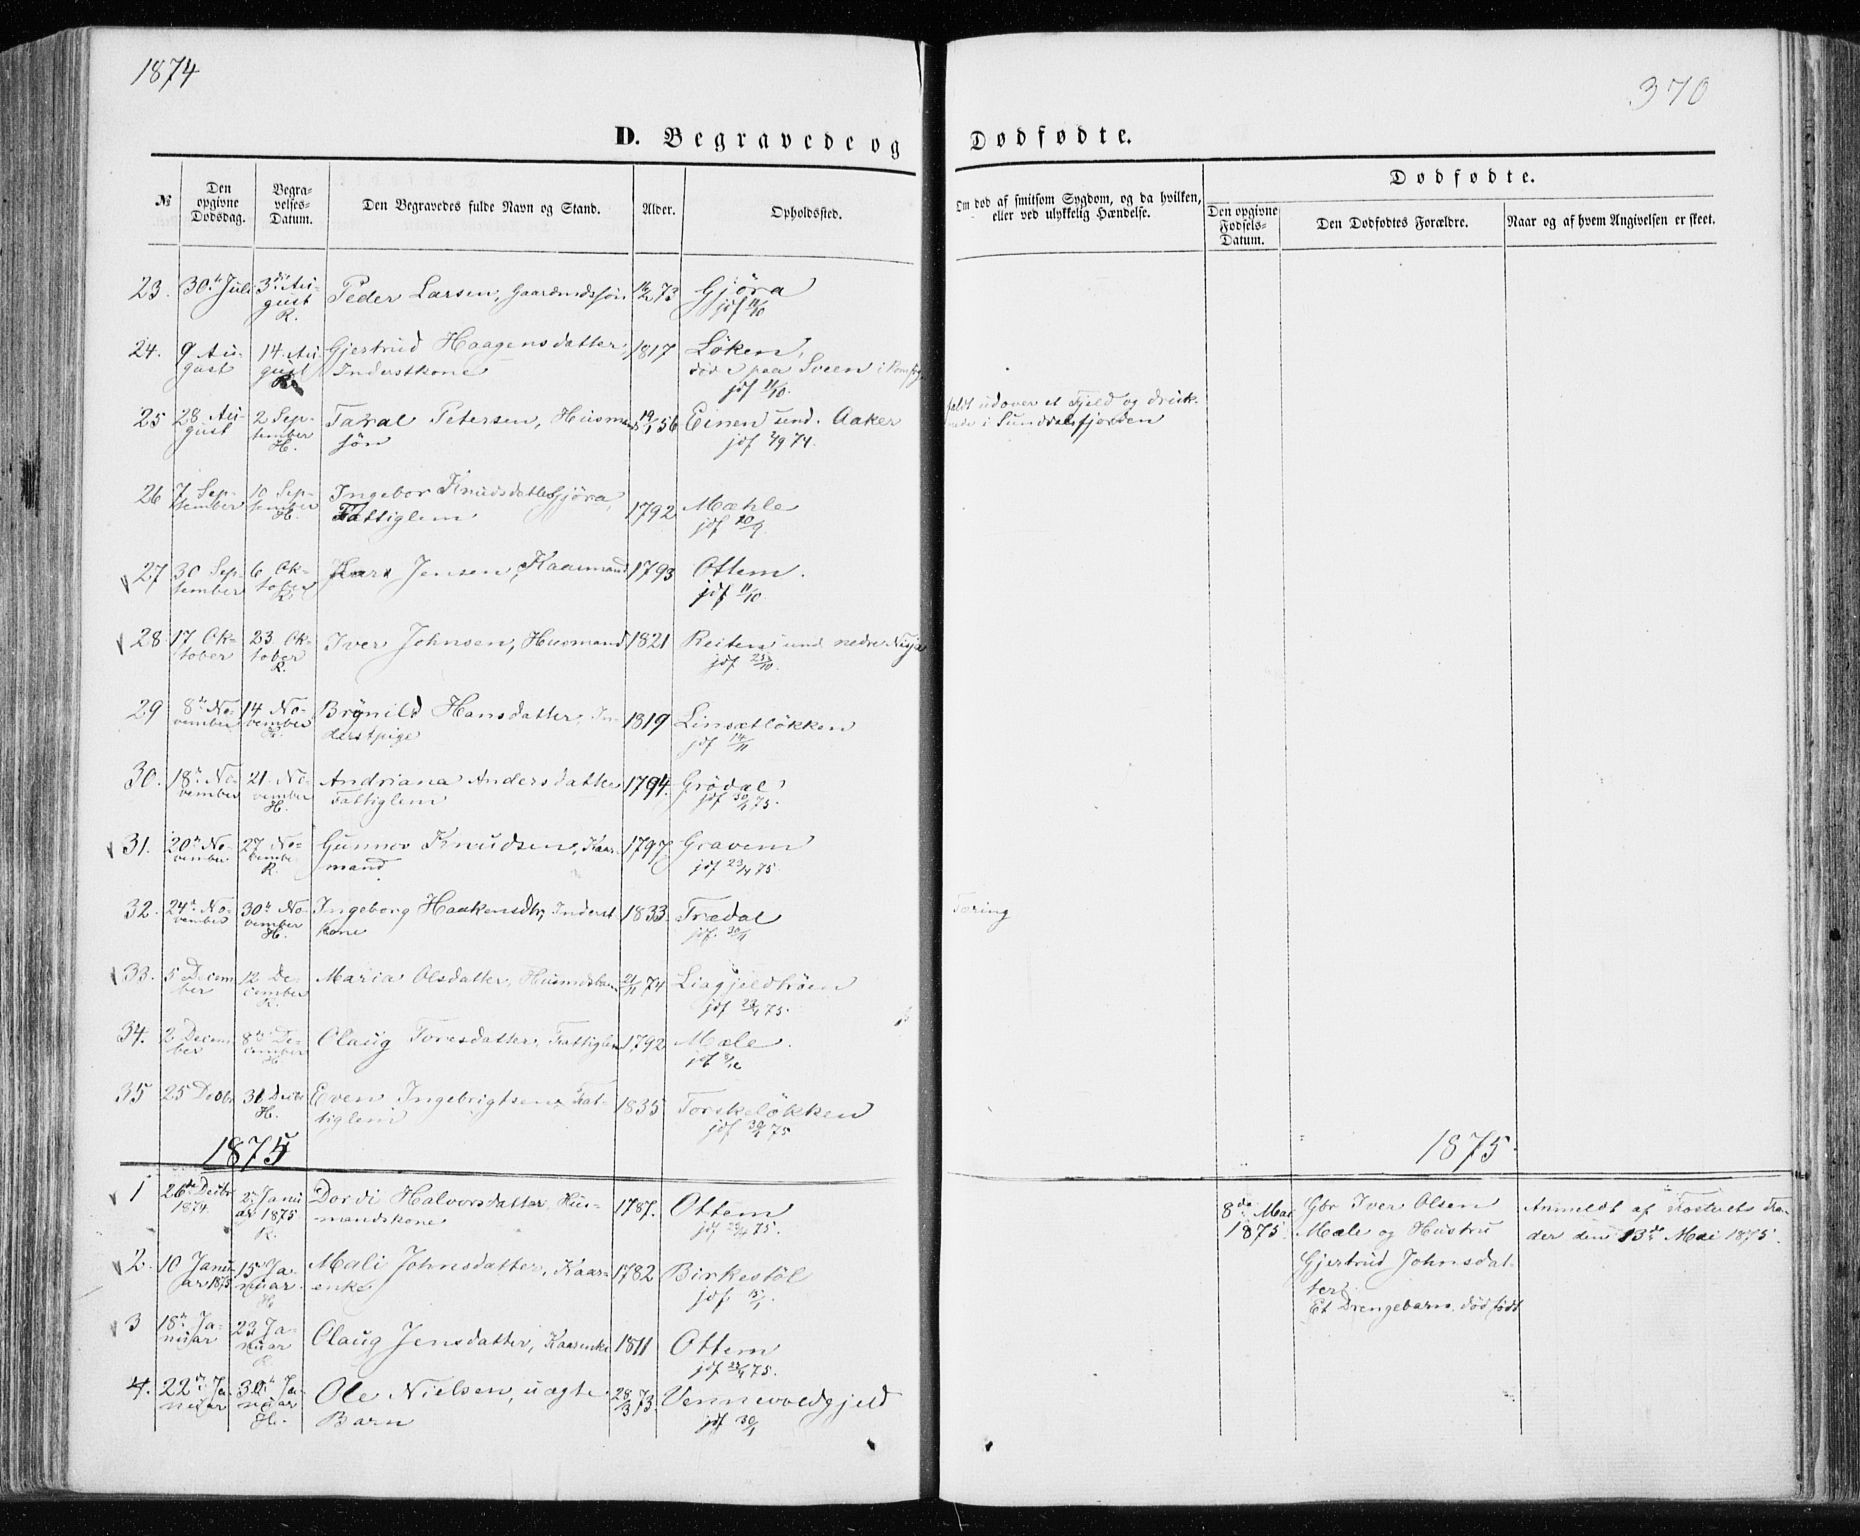 1874
370
D. Begravede og Dødfødte.
№
Den opgivne Dødsdag.
Begravelses-Datum.
Den Begravedes fulde Navn og Stand.
Alder.
Opholdssted.
Om død af smitsom Sygdom, og da hvilken, eller ved ulykkelig Hændelse.
Dødfødte.
Den opgivne Fødsels-Datum.
Den Dødfødtes Forældre.
Naar og af hvem Angivelsen er skeet.
23. 30te Juli 3die August R. Peder Larsen, Gaardmdssøn 73 Gjöra
jvf 11/10
24. 9 August 14 August R. Gjertrud Haagensdatter, Inderstkone 1817 Löken,
död paa Sveen i
jvf 11/10.
25 28 August 2 September H. Taral Petersen, Husmandssön 19/1 56 Einen und. Aaker
jvf 74.
faldt udover et Fjeld og druknede i Sunddalsfjorden
26 7 September 10 September H. Ingebor Knudsdatter Gjöra, Fattiglem 1792 Mæhle
jvf 10/9
27 30 September 6 Oktober R. Lars Jensen, Kaarmand 1793 Ottem.
jvf 11/10.
28 17 Oktober 23 Oktober R. Iver Johnsen, Husmand 1821 Reiten und nedre
jvf 25/10.
29 8te November 14 November H. Brönild Hansdatter, Inderstpige 1819 Linsetløkken
jvf 14/11
30. 18te November 21 November H. Andriana Andersdatter Fattiglem 1794. Grödal
jvf 30/1 75.
31. 20de November 27 November R. Gunnor Knudsen, Kaarmand 1797 Gravem
jvf 23/4 75
32. 24de November 30te November H. Ingeborg Haakensdtr, Inderstkone 1833. Trædal
jvf. 30/1
Tæring
33. 5 December 12 December R. Maria Olsdatter, Husmdsbarn 21/11 74 Liagjeldhöen
jvf 23/4 75.
34. 2 December 8de December H. Olaug Toresdatter, Fattiglem 1792 Mæle.
jvf 8/12
35 25 Decbr 31 Decbr H. Even Ingebrigtsen, Fattiglem 1835 Torskeløkken
jvf 30/1 75
1875
1875.
1 26de Decbr 1874. 2 Januar 1875 R. Dordi Halvorsdatter Husmandskone 1787. Ottem
jvf 23/4 75.
8de Mai 1875. Gbr Iver Olsen
Mæle og Hustru
Gjertrud Johnsdatter.
Et Drengebarn, dødfødt
Anmeldt af Fostrets Fader den 13de Mai 1875.
2. 10 Januar 1875 15 Januar H Mali Johnsdatter, Kaarenke 1782 Birkestöl
jvf. 15/1.
3 18de Januar 23 Januar Olaug Jensdatter, Kaarenke 1811 Ottem
jvf 23/4 75.
4. 22de Januar 30te Januar H. Ole Nielsen, uægte Barn 28/3 73. Vennevoldgjeld
jvf 30/1